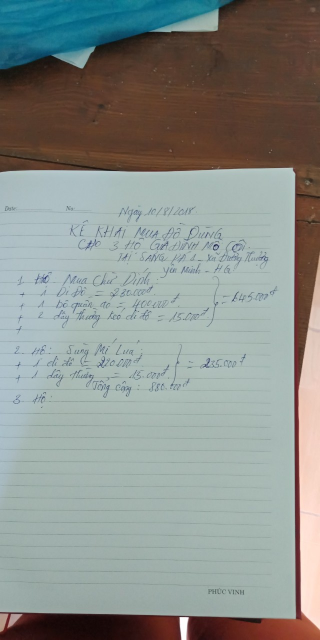 Date: No:
Ngày 10/8/2018
KÊ KHAI MUA ĐỒ DÙNG
CHO 3 HỘ GIA ĐÌNH MỒ CÔI
TẠI SẢNG PẢ 1 - Xã Đường Thượng
Yên Minh - HG
1. Hộ: Chứ Dính:
+ 1 Đi Đô = 230.000đ
+ 1 bộ quần áo = 400.000đ
+ 2 dây thường = 15.000đ
= 645.000đ
+
2. Hộ: Sùng Mí Lùa
+ 1 đi đô = 220.000đ
+ 1 dây thường = 15.000đ
= 235.000đ
Tổng cộng = 880.000đ
3. Hộ:
PHÚC VINH